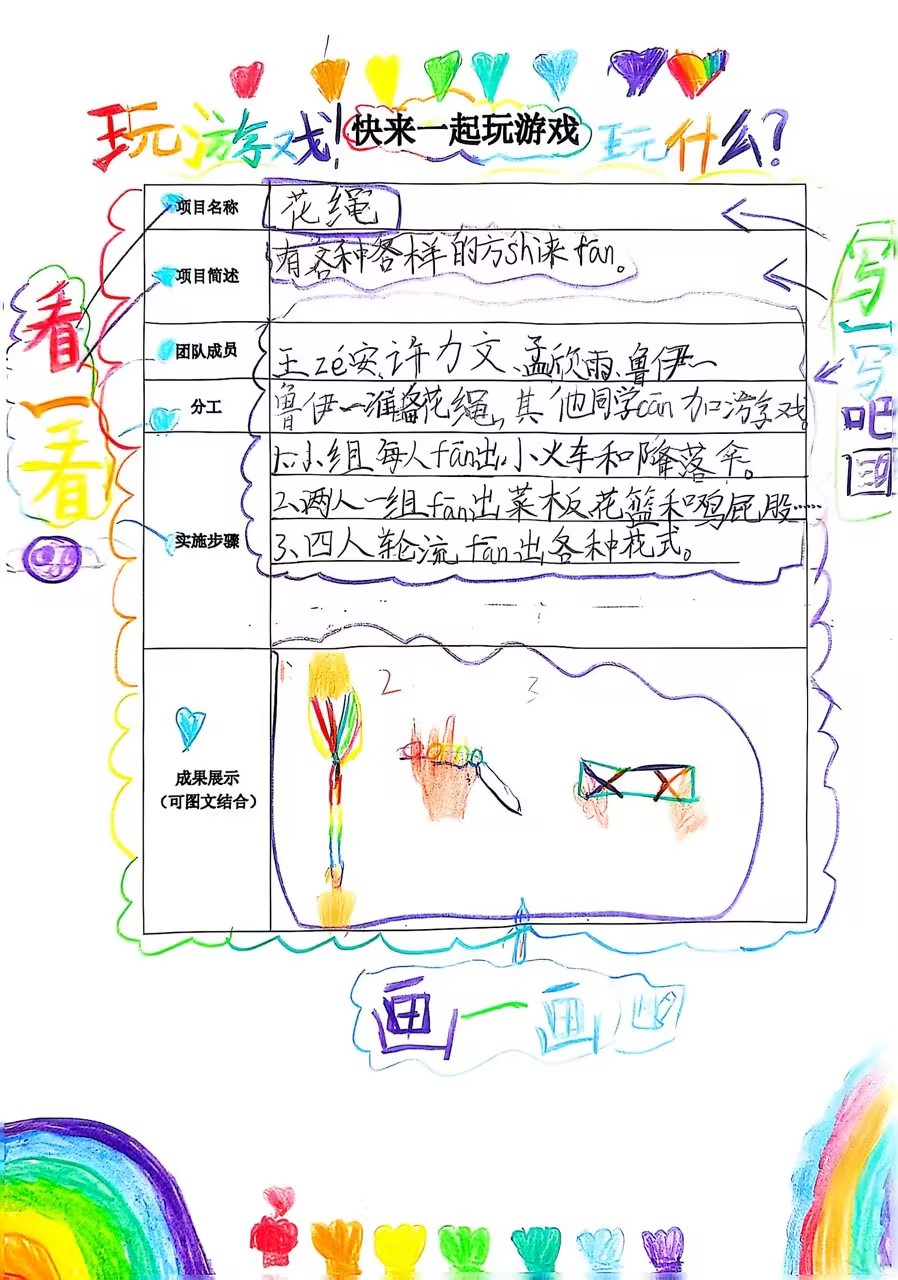 玩游戏！快来一起玩游戏 玩什么？
项目名称 花绳
项目简述 有各种各样的方shì来fān。
团队成员 王zé安、许力文、孟欣雨、鲁伊一
分工 鲁伊一准备花绳，其他同学cān加游戏。
实施步骤
1、小组每人fān出小火车和降落伞。
2、两人一组fān出菜板花篮和鸡屁股……
3、四人轮流fān出各种花式。
成果展示
（可图文结合）
1 2 3
看一看
写一写吧
画一画